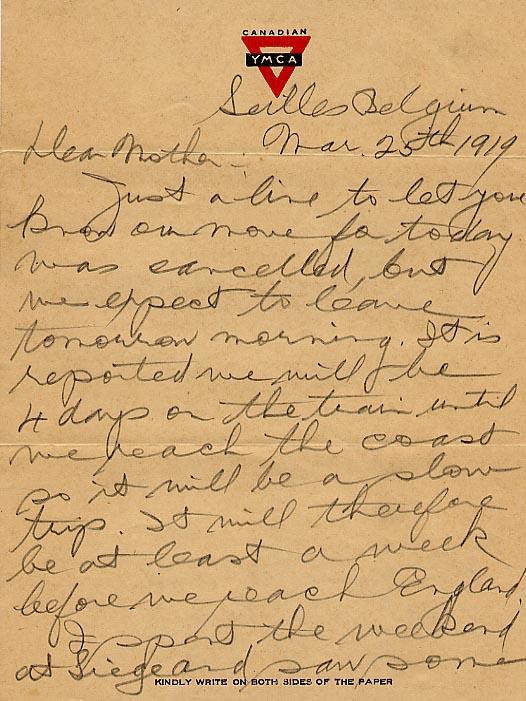 CANADIAN
YMCA
Seilles Belgium
Mar. 25th 1919
Dear Mother -
Just a line to let you
know our move for today
was cancelled, but
we expect to leave
tomorrow morning. It is
reported we will be
4 days on the train until
we reach the coast
so it will be a slow
trip. It will therefore
be at least a week
before we reach England.
I spent the weekend
at Liege and saw some
KINDLY WRITE ON BOTH SIDES OF THE PAPER